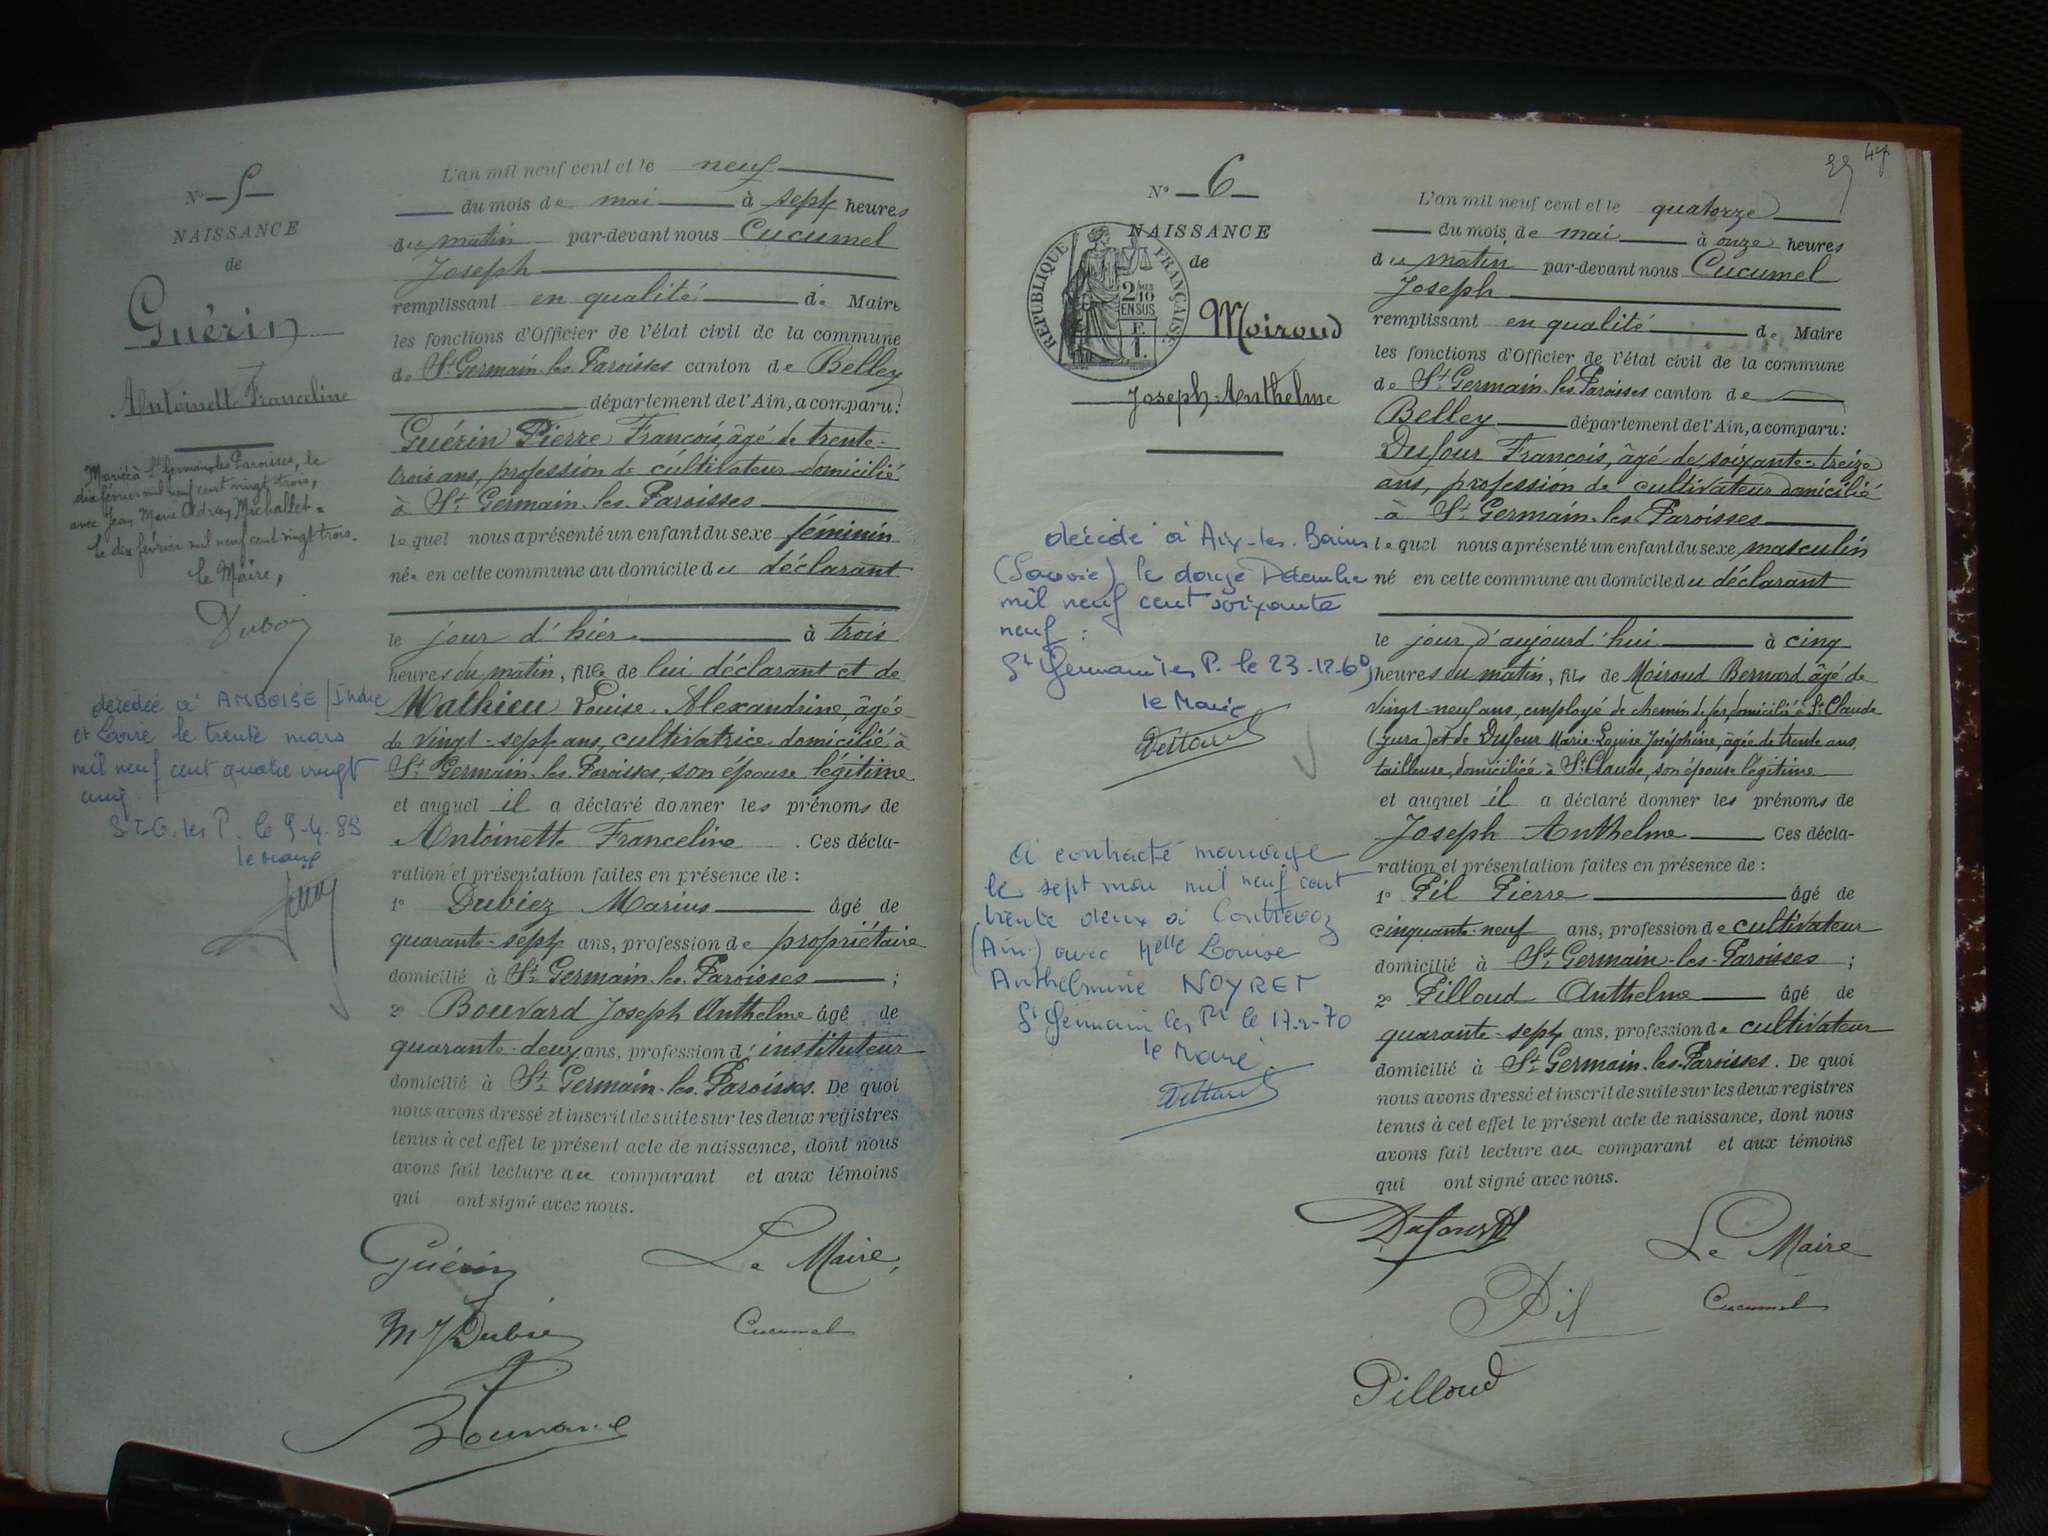 N° 5
NAISSANCE
de
Guérin
Antoinette Franceline
Mariée à St Germain les Paroisses, le
dix février mil neuf cent vingt trois,
avec Jean Marie Michallet
le dix février mil neuf cent vingt trois.
le Maire,
décédée à AMBOISE / Indre
et Loire le trente mars
mil neuf cent quatre vingt
cinq
St G. les P. le 9.4.85
le maire
L'an mil neuf cent et le neuf
du mois de mai à sept heures
du matin par-devant nous Cucumel
Joseph
remplissant en qualité de Maire
les fonctions d'Officier de l'état civil de la commune
de St Germain-les-Paroisses canton de Belley
département de l'Ain, a comparu:
Guérin Pierre François, âgé de trente-
trois ans, profession de cultivateur domicilié
à St Germain-les-Paroisses
lequel nous a présenté un enfant du sexe féminin
née en cette commune au domicile du déclarant
le jour d'hier à trois
heures du matin, fille de lui déclarant et de
Mathieu Louise Alexandrine, âgée
de vingt-sept ans, cultivatrice domicilié à
St Germain-les-Paroisses, son épouse légitime
et auquel il a déclaré donner les prénoms de
Antoinette Franceline. Ces décla-
ration et présentation faites en présence de :
1° Dubiez Marius âgé de
quarante-sept ans, profession de propriétaire
domicilié à St Germain-les-Paroisses ;
2° Bouvard Joseph Anthelme âgé de
quarante-deux ans, profession d'instituteur
domicilié à St Germain-les-Paroisses. De quoi
nous avons dressé et inscrit de suite sur les deux registres
tenus à cet effet le présent acte de naissance, dont nous
avons fait lecture au comparant et aux témoins
qui ont signé avec nous.
Guérin
Le Maire,
Cucumel
N° 6
NAISSANCE
de
REPUBLIQUE FRANÇAISE
2/10 MES
EN SUS
Moiroud
Joseph-Anthelme
décédé à Aix-les-Bains
(Savoie) le douze Décembre
mil neuf cent soixante
neuf :
St Germain les P. le 23-12-69
le Maire
a contracté mariage
le sept mai mil neuf cent
trente deux à Contrevoz
(Ain) avec Melle Louise
Anthelmine NOYRET
St Germain les P. le 17-2-70
le Maire
47
L'an mil neuf cent et le quatorze
du mois de mai à onze heures
du matin par-devant nous Cucumel
Joseph
remplissant en qualité de Maire
les fonctions d'Officier de l'état civil de la commune
de St Germain-les-Paroisses canton de
Belley département de l'Ain, a comparu:
Dufour François, âgé de soixante-treize
ans, profession de cultivateur domicilié
à St Germain-les-Paroisses
lequel nous a présenté un enfant du sexe masculin
né en cette commune au domicile du déclarant
le jour d'aujourd'hui à cinq
heures du matin, fils de Moiroud Bernard âgé de
vingt-neuf ans, employé de chemin de fer, domicilié à St Claude
(Jura) et de Dufour Marie-Louise Joséphine, âgée de trente ans,
tailleuse, domiciliée à St Claude, son épouse légitime
et auquel il a déclaré donner les prénoms de
Joseph Anthelme Ces décla-
ration et présentation faites en présence de :
1° Pil Pierre âgé de
cinquante-neuf ans, profession de cultivateur
domicilié à St Germain-les-Paroisses ;
2° Pilloud Anthelme âgé de
quarante-sept ans, profession de cultivateur
domicilié à St Germain-les-Paroisses. De quoi
nous avons dressé et inscrit de suite sur les deux registres
tenus à cet effet le présent acte de naissance, dont nous
avons fait lecture au comparant et aux témoins
qui ont signé avec nous.
Le Maire
Pil
Cucumel
Pilloud